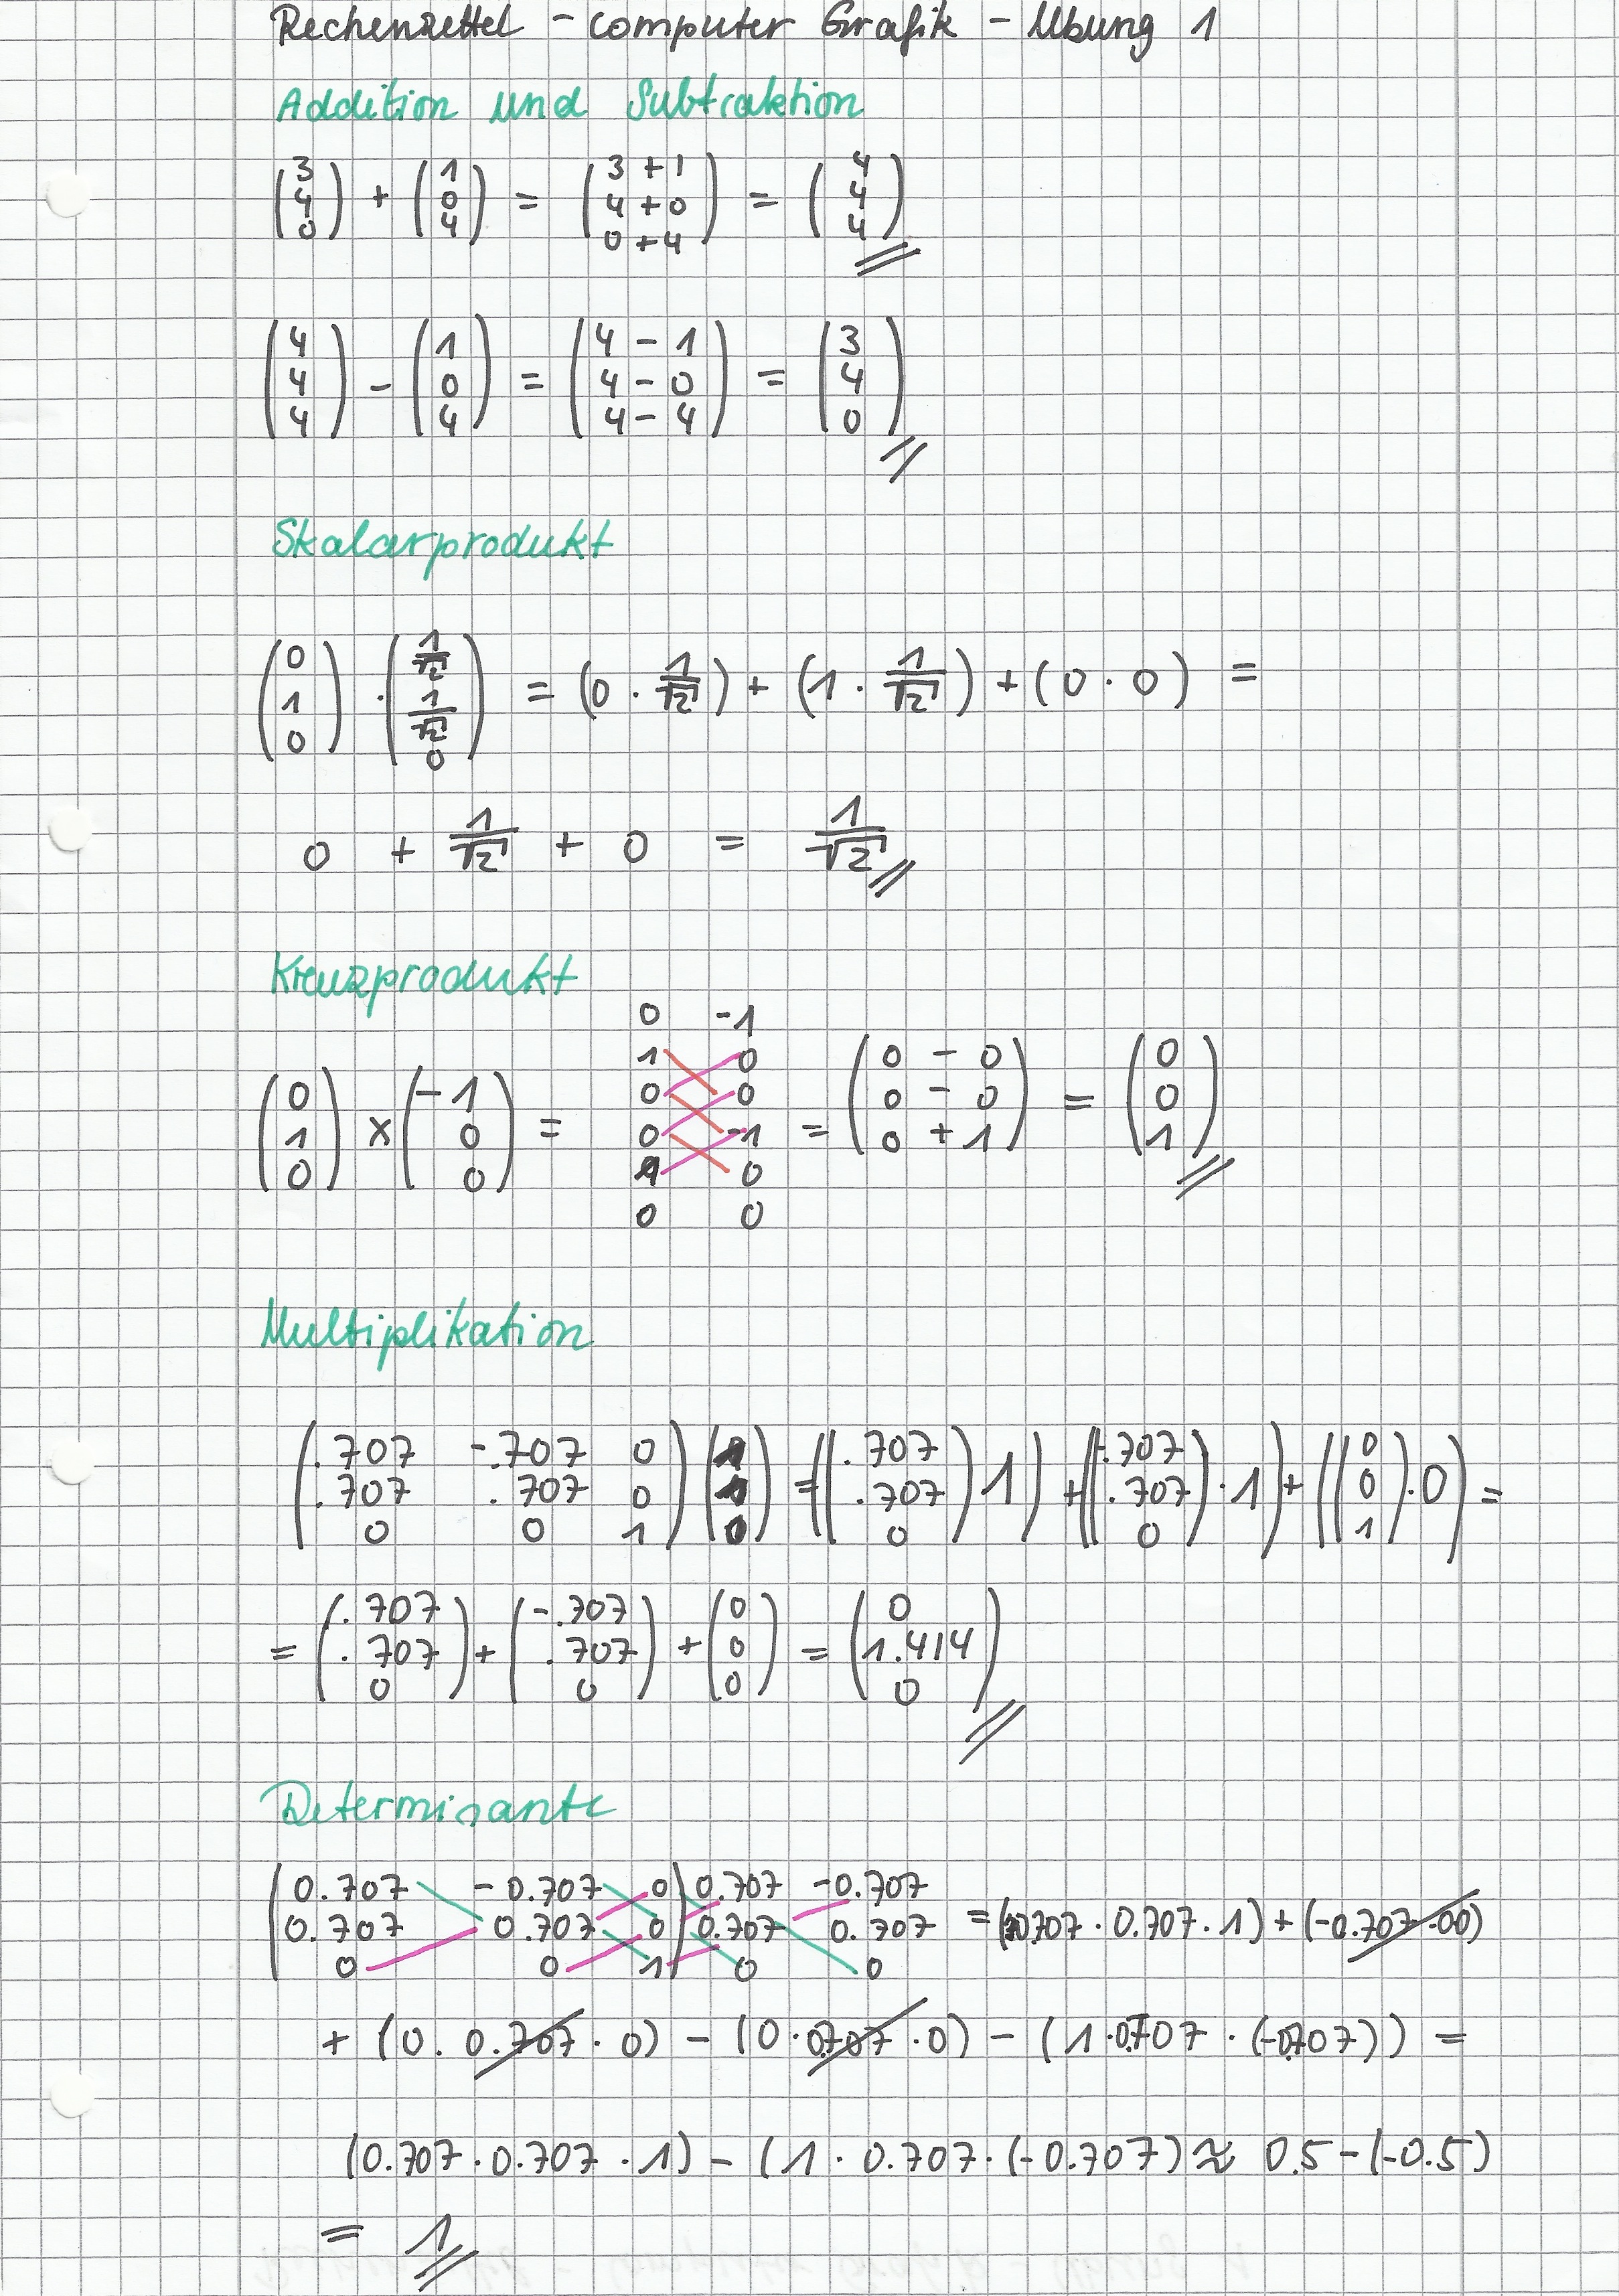 Rechenzettel - Computer Grafik - Übung 1
Addition und Subtraktion
(3 4 0) + (1 0 4) = (3 + 1 4 + 0 0 + 4) = (4 4 4)
(4 4 4) - (1 0 4) = (4 - 1 4 - 0 4 - 4) = (3 4 0)
Skalarprodukt
(0 1 0) · (1/√2 1/√2 0) = (0 · 1/√2) + (1 · 1/√2) + (0 · 0) =
0 + 1/√2 + 0 = 1/√2
Kreuzprodukt
0 -1
1 0
0 0
(0 1 0) × (-1 0 0) = 0 -1 = (0 - 0 0 - 0 0 + 1) = (0 0 1)
1 0
0 0
Multiplikation
(.707 -.707 0 .707 .707 0 0 0 1) (1 1 0) = ((.707 .707 0) 1) + ((-.707 .707 0) · 1) + ((0 0 1) · 0) =
= (.707 .707 0) + (-.707 .707 0) + (0 0 0) = (0 1.414 0)
Determinante
(0.707 -0.707 0) 0.707 -0.707
0.707 0.707 0 0.707 0.707 = (0.707 · 0.707 · 1) + (-0.707 · 0 0)
0 0 1 0 0
+ (0 · 0.707 · 0) - (0 · 0.707 · 0) - (1 · 0.707 · (-0.707)) =
(0.707 · 0.707 · 1) - (1 · 0.707 · (-0.707) ≈ 0.5 - (-0.5)
= 1